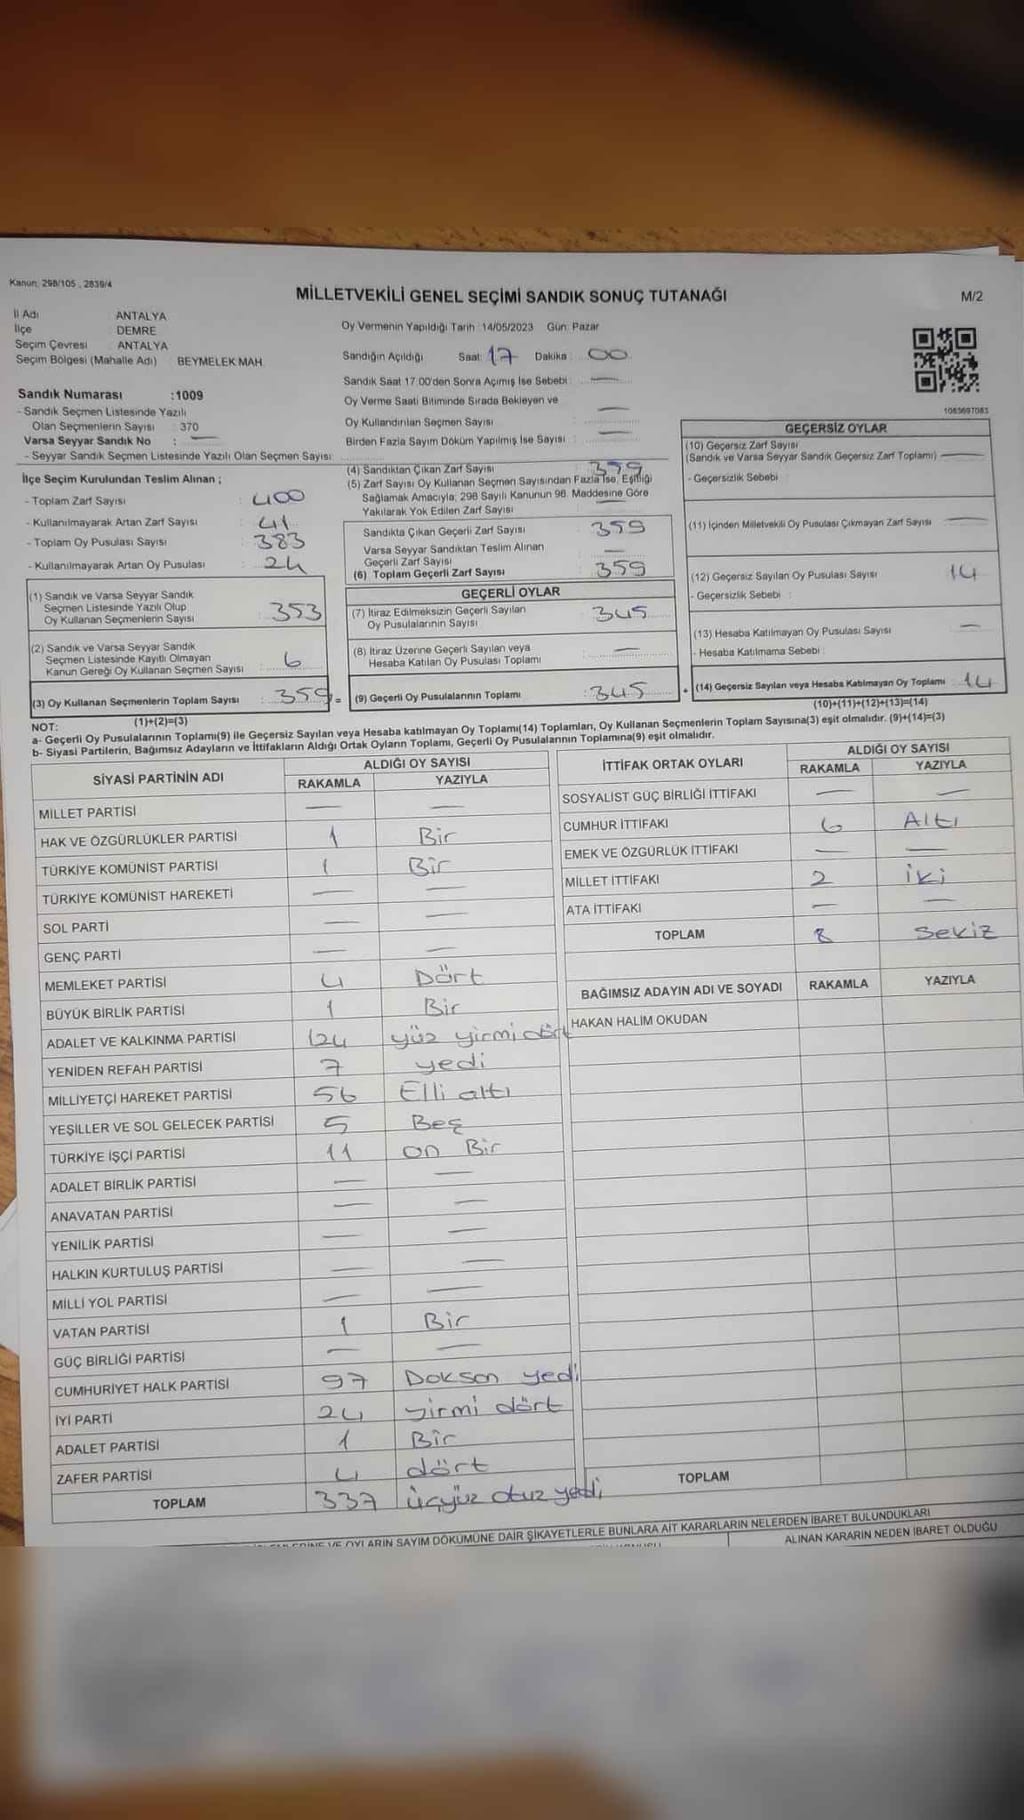 Kanun: 298/105 , 2839/4
MİLLETVEKİLİ GENEL SEÇİMİ SANDIK SONUÇ TUTANAĞI
M/2
İl Adı ANTALYA
İlçe DEMRE
Seçim Çevresi ANTALYA
Seçim Bölgesi (Mahalle Adı) BEYMELEK MAH.
Sandık Numarası :1009
- Sandık Seçmen Listesinde Yazılı
Olan Seçmenlerin Sayısı : 370
Varsa Seyyar Sandık No : —
- Seyyar Sandık Seçmen Listesinde Yazılı Olan Seçmen Sayısı:
Oy Vermenin Yapıldığı Tarih :14/05/2023 Gün: Pazar
Sandığın Açıldığı Saat: 17 Dakika : 00
Sandık Saat 17:00'den Sonra Açımış İse Sebebi : —
Oy Verme Saati Bitiminde Sırada Bekleyen ve
Oy Kullandırılan Seçmen Sayısı : —
Birden Fazla Sayım Döküm Yapılmış İse Sayısı : —
1083697083
İlçe Seçim Kurulundan Teslim Alınan ;
- Toplam Zarf Sayısı : 400
- Kullanılmayarak Artan Zarf Sayısı : 41
- Toplam Oy Pusulası Sayısı : 383
- Kullanılmayarak Artan Oy Pusulası : 24
(1) Sandık ve Varsa Seyyar Sandık
Seçmen Listesinde Yazılı Olup
Oy Kullanan Seçmenlerin Sayısı : 353
(2) Sandık ve Varsa Seyyar Sandık
Seçmen Listesinde Kayıtlı Olmayan
Kanun Gereği Oy Kullanan Seçmen Sayısı : 6
(3) Oy Kullanan Seçmenlerin Toplam Sayısı : 359 =
(1)+(2)=(3)
(4) Sandıktan Çıkan Zarf Sayısı : 359
(5) Zarf Sayısı Oy Kullanan Seçmen Sayısından Fazla İse, Eşitliği
Sağlamak Amacıyla; 298 Sayılı Kanunun 98. Maddesine Göre
Yakılarak Yok Edilen Zarf Sayısı : —
Sandıkta Çıkan Geçerli Zarf Sayısı : 359
Varsa Seyyar Sandıktan Teslim Alınan
Geçerli Zarf Sayısı : —
(6) Toplam Geçerli Zarf Sayısı : 359
GEÇERLİ OYLAR
(7) İtiraz Edilmeksizin Geçerli Sayılan
Oy Pusulalarının Sayısı : 345
(8) İtiraz Üzerine Geçerli Sayılan veya
Hesaba Katılan Oy Pusulası Toplamı : —
(9) Geçerli Oy Pusulalarının Toplamı : 345 +
GEÇERSİZ OYLAR
(10) Geçersiz Zarf Sayısı
(Sandık ve Varsa Seyyar Sandık Geçersiz Zarf Toplamı) —
- Geçersizlik Sebebi :
(11) İçinden Milletvekili Oy Pusulası Çıkmayan Zarf Sayısı —
(12) Geçersiz Sayılan Oy Pusulası Sayısı : 14
- Geçersizlik Sebebi :
(13) Hesaba Katılmayan Oy Pusulası Sayısı : —
- Hesaba Katılmama Sebebi :
(14) Geçersiz Sayılan veya Hesaba Katılmayan Oy Toplamı : 14
(10)+(11)+(12)+(13)=(14)
NOT:
a- Geçerli Oy Pusulalarının Toplamı(9) ile Geçersiz Sayılan veya Hesaba katılmayan Oy Toplamı(14) Toplamları, Oy Kullanan Seçmenlerin Toplam Sayısına(3) eşit olmalıdır. (9)+(14)=(3)
b- Siyasi Partilerin, Bağımsız Adayların ve İttifakların Aldığı Ortak Oyların Toplamı, Geçerli Oy Pusulalarının Toplamına(9) eşit olmalıdır.
SİYASİ PARTİNİN ADI ALDIĞI OY SAYISI
RAKAMLA YAZIYLA
MİLLET PARTİSİ — —
HAK VE ÖZGÜRLÜKLER PARTİSİ 1 Bir
TÜRKİYE KOMÜNİST PARTİSİ 1 Bir
TÜRKİYE KOMÜNİST HAREKETİ — —
SOL PARTİ — —
GENÇ PARTİ — —
MEMLEKET PARTİSİ 4 Dört
BÜYÜK BİRLİK PARTİSİ 1 Bir
ADALET VE KALKINMA PARTİSİ 124 yüz yirmi dört
YENİDEN REFAH PARTİSİ 7 yedi
MİLLİYETÇİ HAREKET PARTİSİ 56 Elli altı
YEŞİLLER VE SOL GELECEK PARTİSİ 5 Beş
TÜRKİYE İŞÇİ PARTİSİ 11 on Bir
ADALET BİRLİK PARTİSİ — —
ANAVATAN PARTİSİ — —
YENİLİK PARTİSİ — —
HALKIN KURTULUŞ PARTİSİ — —
MİLLİ YOL PARTİSİ — —
VATAN PARTİSİ 1 Bir
GÜÇ BİRLİĞİ PARTİSİ — —
CUMHURİYET HALK PARTİSİ 97 Doksan yedi
İYİ PARTİ 24 yirmi dört
ADALET PARTİSİ 1 Bir
ZAFER PARTİSİ 4 dört
TOPLAM 337 üçyüz otuz yedi
İTTİFAK ORTAK OYLARI ALDIĞI OY SAYISI
RAKAMLA YAZIYLA
SOSYALİST GÜÇ BİRLİĞİ İTTİFAKI — —
CUMHUR İTTİFAKI 6 Altı
EMEK VE ÖZGÜRLÜK İTTİFAKI — —
MİLLET İTTİFAKI 2 iki
ATA İTTİFAKI — —
TOPLAM 8 sekiz
BAĞIMSIZ ADAYIN ADI VE SOYADI RAKAMLA YAZIYLA
HAKAN HALİM OKUDAN
TOPLAM
VE OYLARIN SAYIM DÖKÜMÜNE DAİR ŞİKAYETLERLE BUNLARA AİT KARARLARIN NELERDEN İBARET BULUNDUKLARI
ALINAN KARARIN NEDEN İBARET OLDUĞU